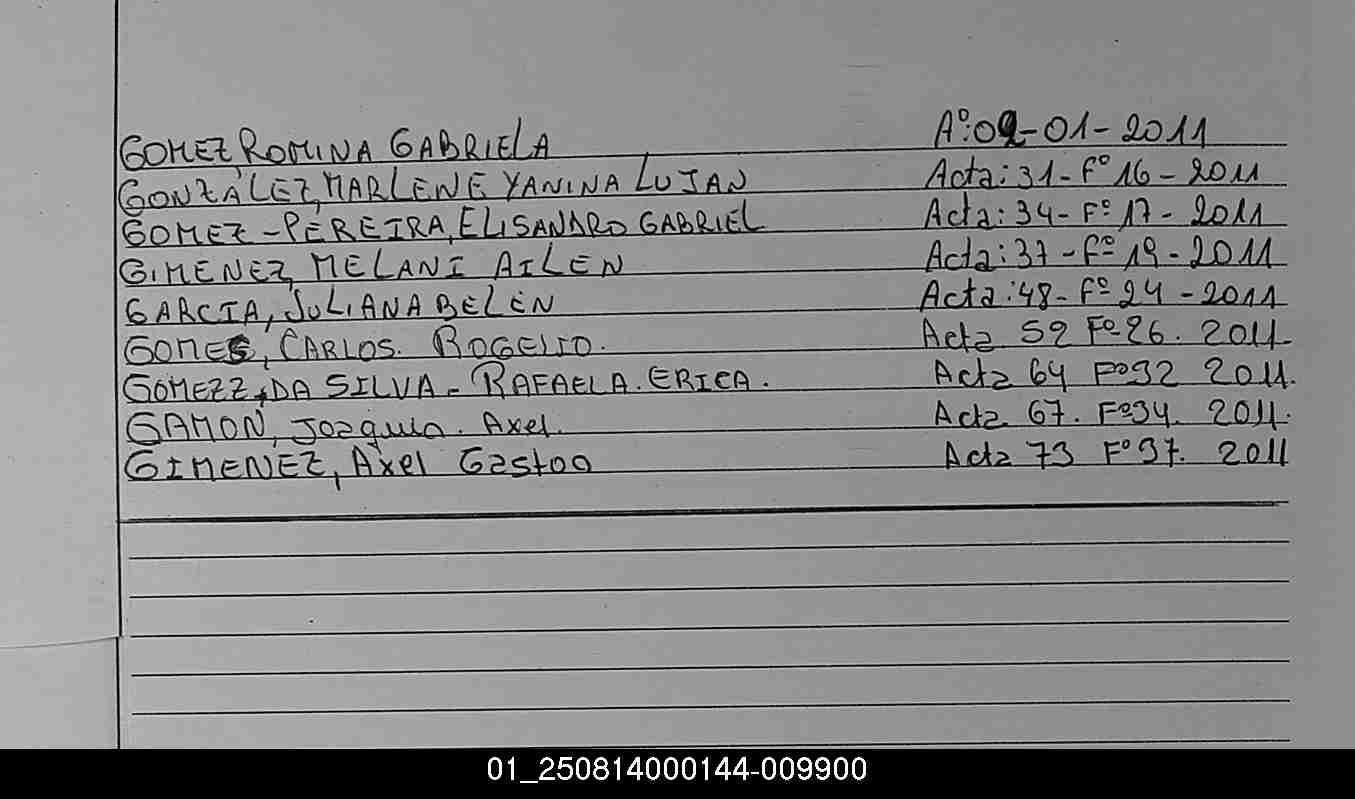 GOMEZ, ROMINA GABRIELA Aº:02-01-2011
GONZÁLEZ, MARLENE YANINA LUJAN Acta: 31-Fº16-2011
GOMEZ-PEREIRA, ELISANDRO GABRIEL Acta: 34-Fº17-2011
GIMENEZ, MELANI AILEN Acta: 37-Fº19-2011
GARCIA, JULIANA BELÉN Acta: 48-Fº24-2011
GOMES, CARLOS. ROGELIO. Acta 52 Fº26. 2011.
GOMEZZ, DA SILVA- RAFAELA. ERICA. Acta 64 Fº32 2011.
GAMON, Joaquin. Axel. Acta 67. Fº34. 2011.
GIMENEZ, Axel Gaston Acta 73 Fº37. 2011
01_250814000144-009900